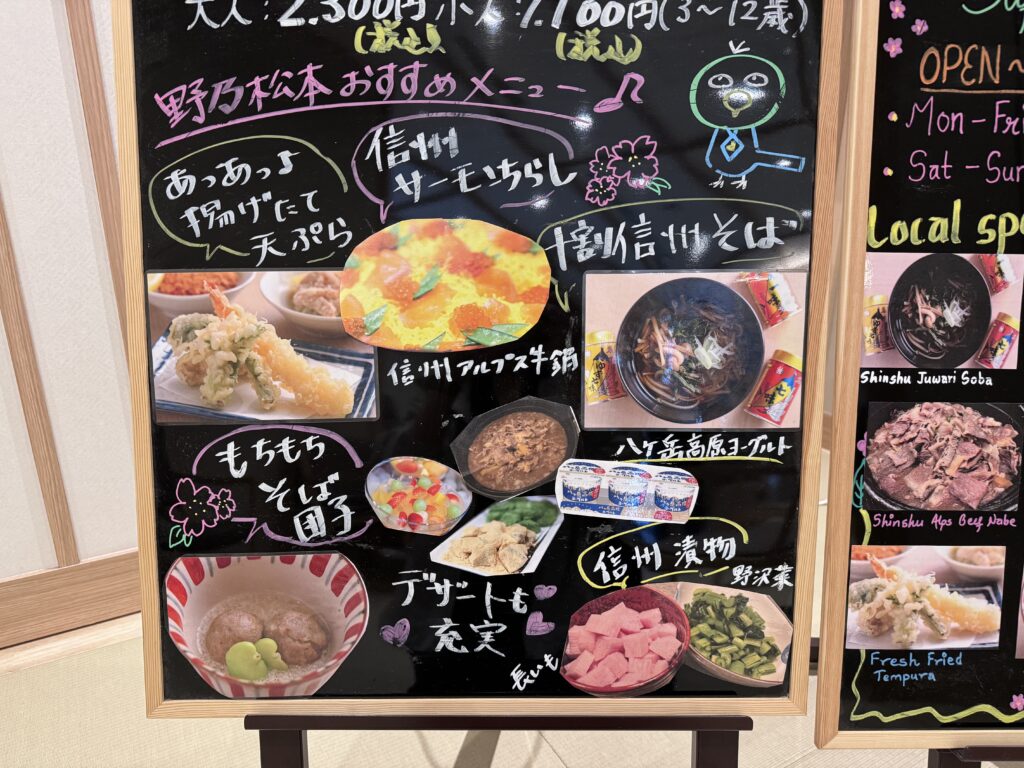 大人:2.300円 小人:1.100円(3〜12歳)
(税込) (税込)
野乃松本おすすめメニュー
あっあっ
揚げたて
天ぷら
信州
サーモンちらし
十割信州そば
信州アルプス牛鍋
八ヶ岳高原ヨーグルト
もちもち
そば
団子
デザートも
充実
信州 漬物
野沢菜
長いも
OPEN~
Mon-Fri
Sat-Sun
Local spe
Shinshu Juwari Soba
Shinshu Alps Beef Nabe
Fresh Fried
Tempura